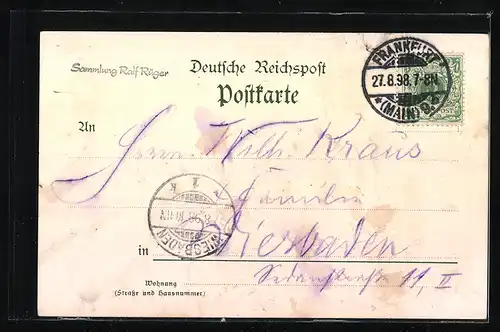 Sammlung Ralf Rüger
Deutsche Reichspost
Postkarte
FRANKFURT
27.8.98.7-8N
*(MAIN)9*
An
Herrn Wilh. Kraus
1 k
Familien
WIESBADEN
in Wiesbaden
Sedanstrasse 11, II
Wohnung
(Straße und Hausnummer)